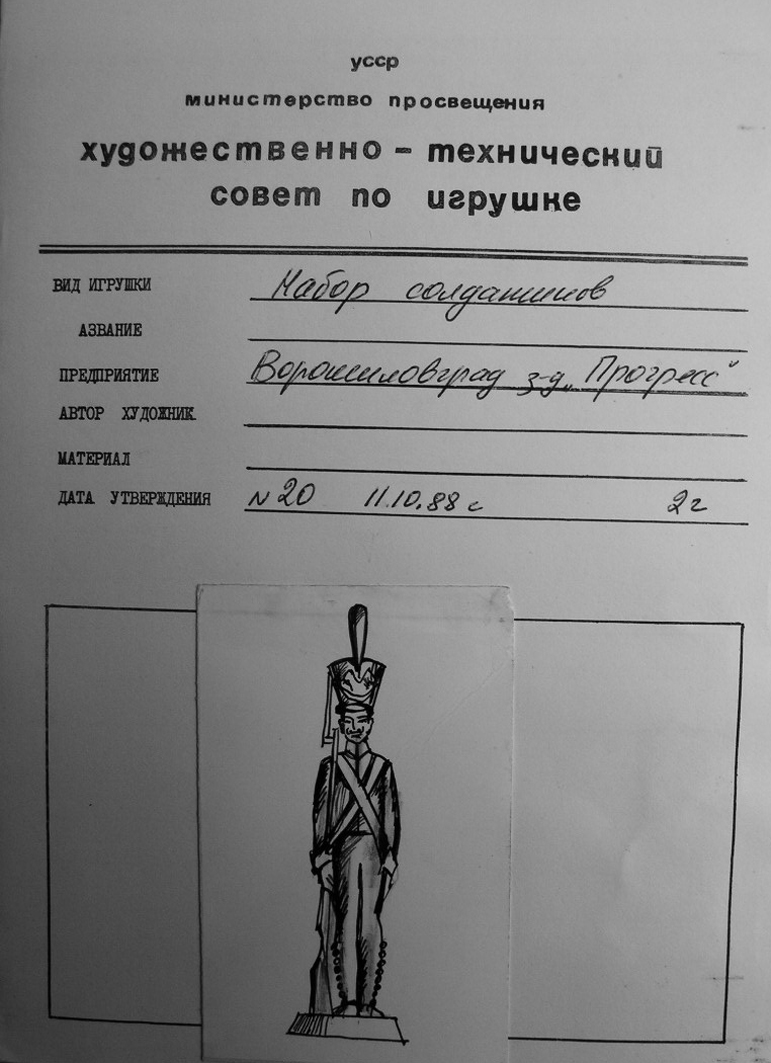 усср
министерство просвещения
художественно - технический
совет по игрушке
ВИД ИГРУШКИ Набор солдатиков
АЗВАНИЕ
ПРЕДПРИЯТИЕ Ворошиловград з-д „Прогресс"
АВТОР ХУДОЖНИК
МАТЕРИАЛ
ДАТА УТВЕРЖДЕНИЯ N 20 11.10.88 г 2 г